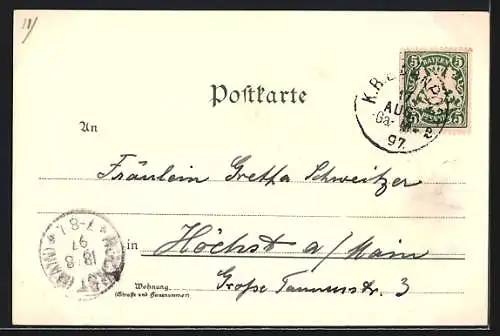 Postkarte
5 BAYERN 5
K.B.
AUG
97
2
An
Fräulein Gretha Schweitzer
in Höchst a/Main
Wohnung
(Straße und Hausnummer)
Große Taunusstr. 3
HÖCHST (MAIN)
18 8
97
7-8.